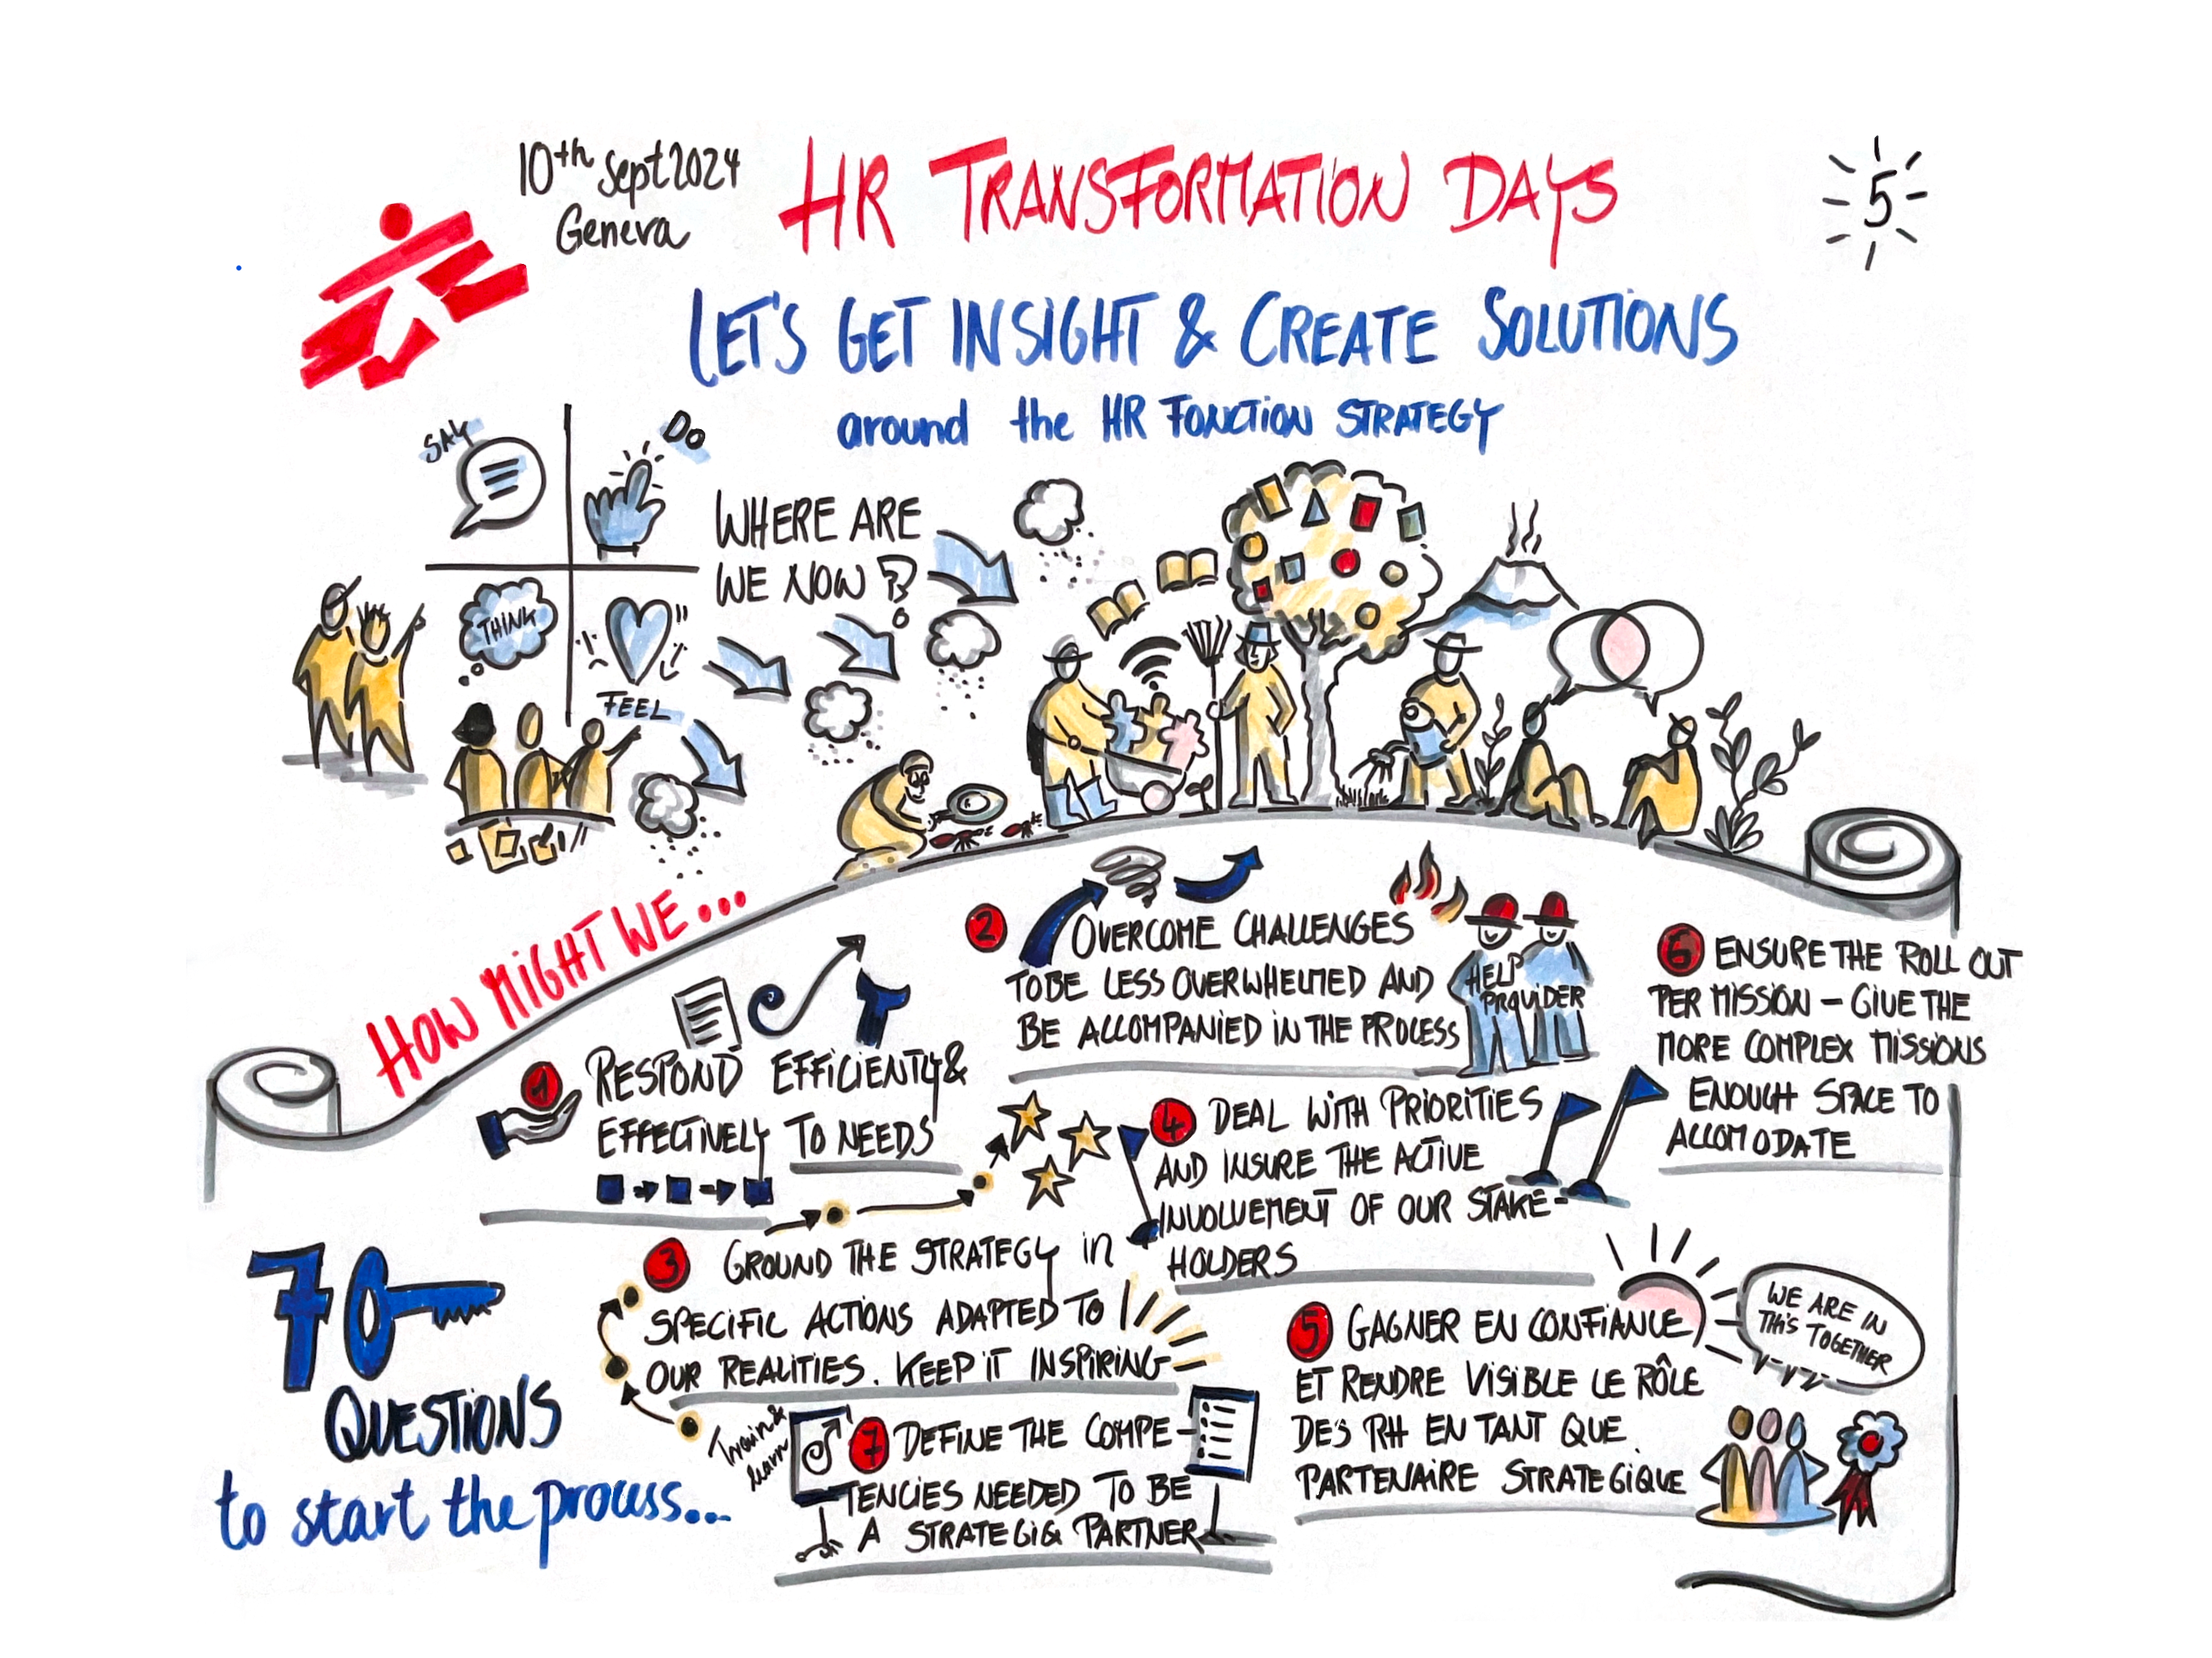 10th Sept 2024
Geneva
HR TRANSFORMATION DAYS
5
LET'S GET INSIGHT & CREATE SOLUTIONS
around the HR FONCTION STRATEGY
SAY
DO
THINK
FEEL
WHERE ARE
WE NOW ?
HOW MIGHT WE...
1 RESPOND EFFICIENTLY &
EFFECTIVELY TO NEEDS
2 OVERCOME CHALLENGES
TO BE LESS OVERWHELMED AND
BE ACCOMPANIED IN THE PROCESS
HELP
PROVIDER
3 GROUND THE STRATEGY in
SPECIFIC ACTIONS ADAPTED TO
OUR REALITIES. KEEP IT INSPIRING
4 DEAL WITH PRIORITIES
AND INSURE THE ACTIVE
INVOLVEMENT OF OUR STAKE-
HOLDERS
5 GAGNER EN CONFIANCE
ET RENDRE VISIBLE LE RÔLE
DES RH EN TANT QUE
PARTENAIRE STRATEGIQUE
WE ARE IN
THIS TOGETHER
6 ENSURE THE ROLL OUT
PER MISSION - GIVE THE
MORE COMPLEX MISSIONS
ENOUGH SPACE TO
ACCOMODATE
Train &
learn
7 DEFINE THE COMPE-
TENCIES NEEDED TO BE
A STRATEGIC PARTNER
70
QUESTIONS
to start the process...